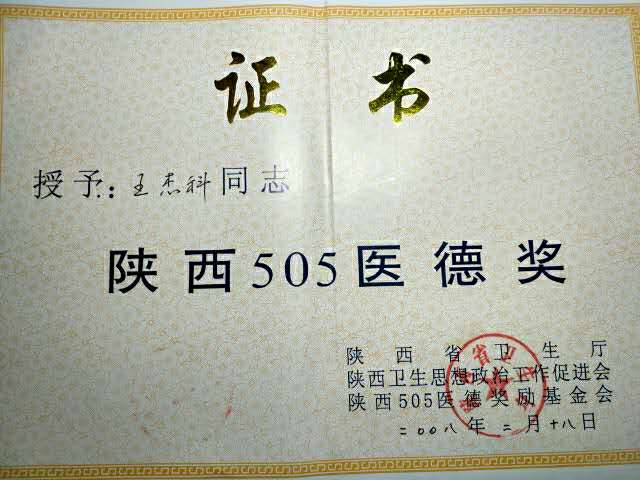 证书
授予：王杰科同志
陕西505医德奖
陕西省卫生厅
陕西卫生思想政治工作促进会
陕西505医德奖励基金会
二00八年二月十八日